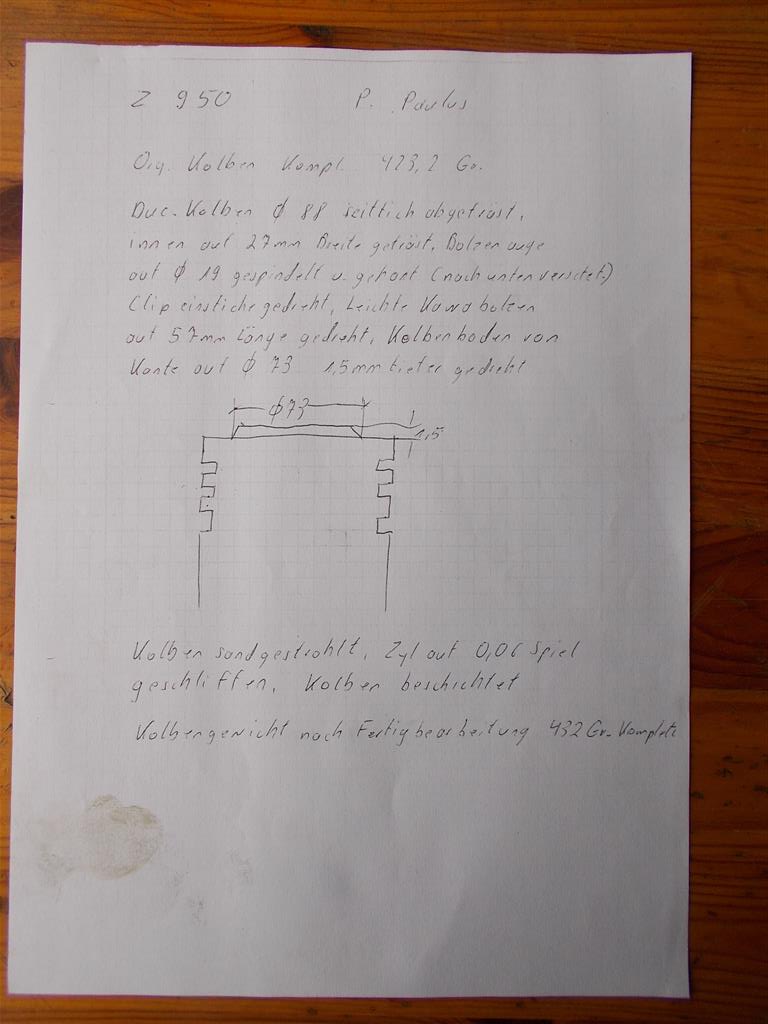 Z 950 P. Paulus
Orig. Kolben Kompl. 423,2 Gr.
Duc.-Kolben ϕ 88 seitlich abgefräst,
innen auf 27mm Breite gefräst, Bolzenauge
auf ϕ 19 gespindelt u. gehont (nach unten versetzt)
Clip einstiche gedreht, Leichte Kawa bolzen
auf 57mm Länge gedreht, Kolbenboden von
Kante auf ϕ 73 1,5mm tiefer gedreht
ϕ 73
1,5
Kolben sandgestrahlt, Zyl auf 0,06 Spiel
geschliffen, Kolben beschichtet
Kolbengewicht nach Fertigbearbeitung 432 Gr. Komplett